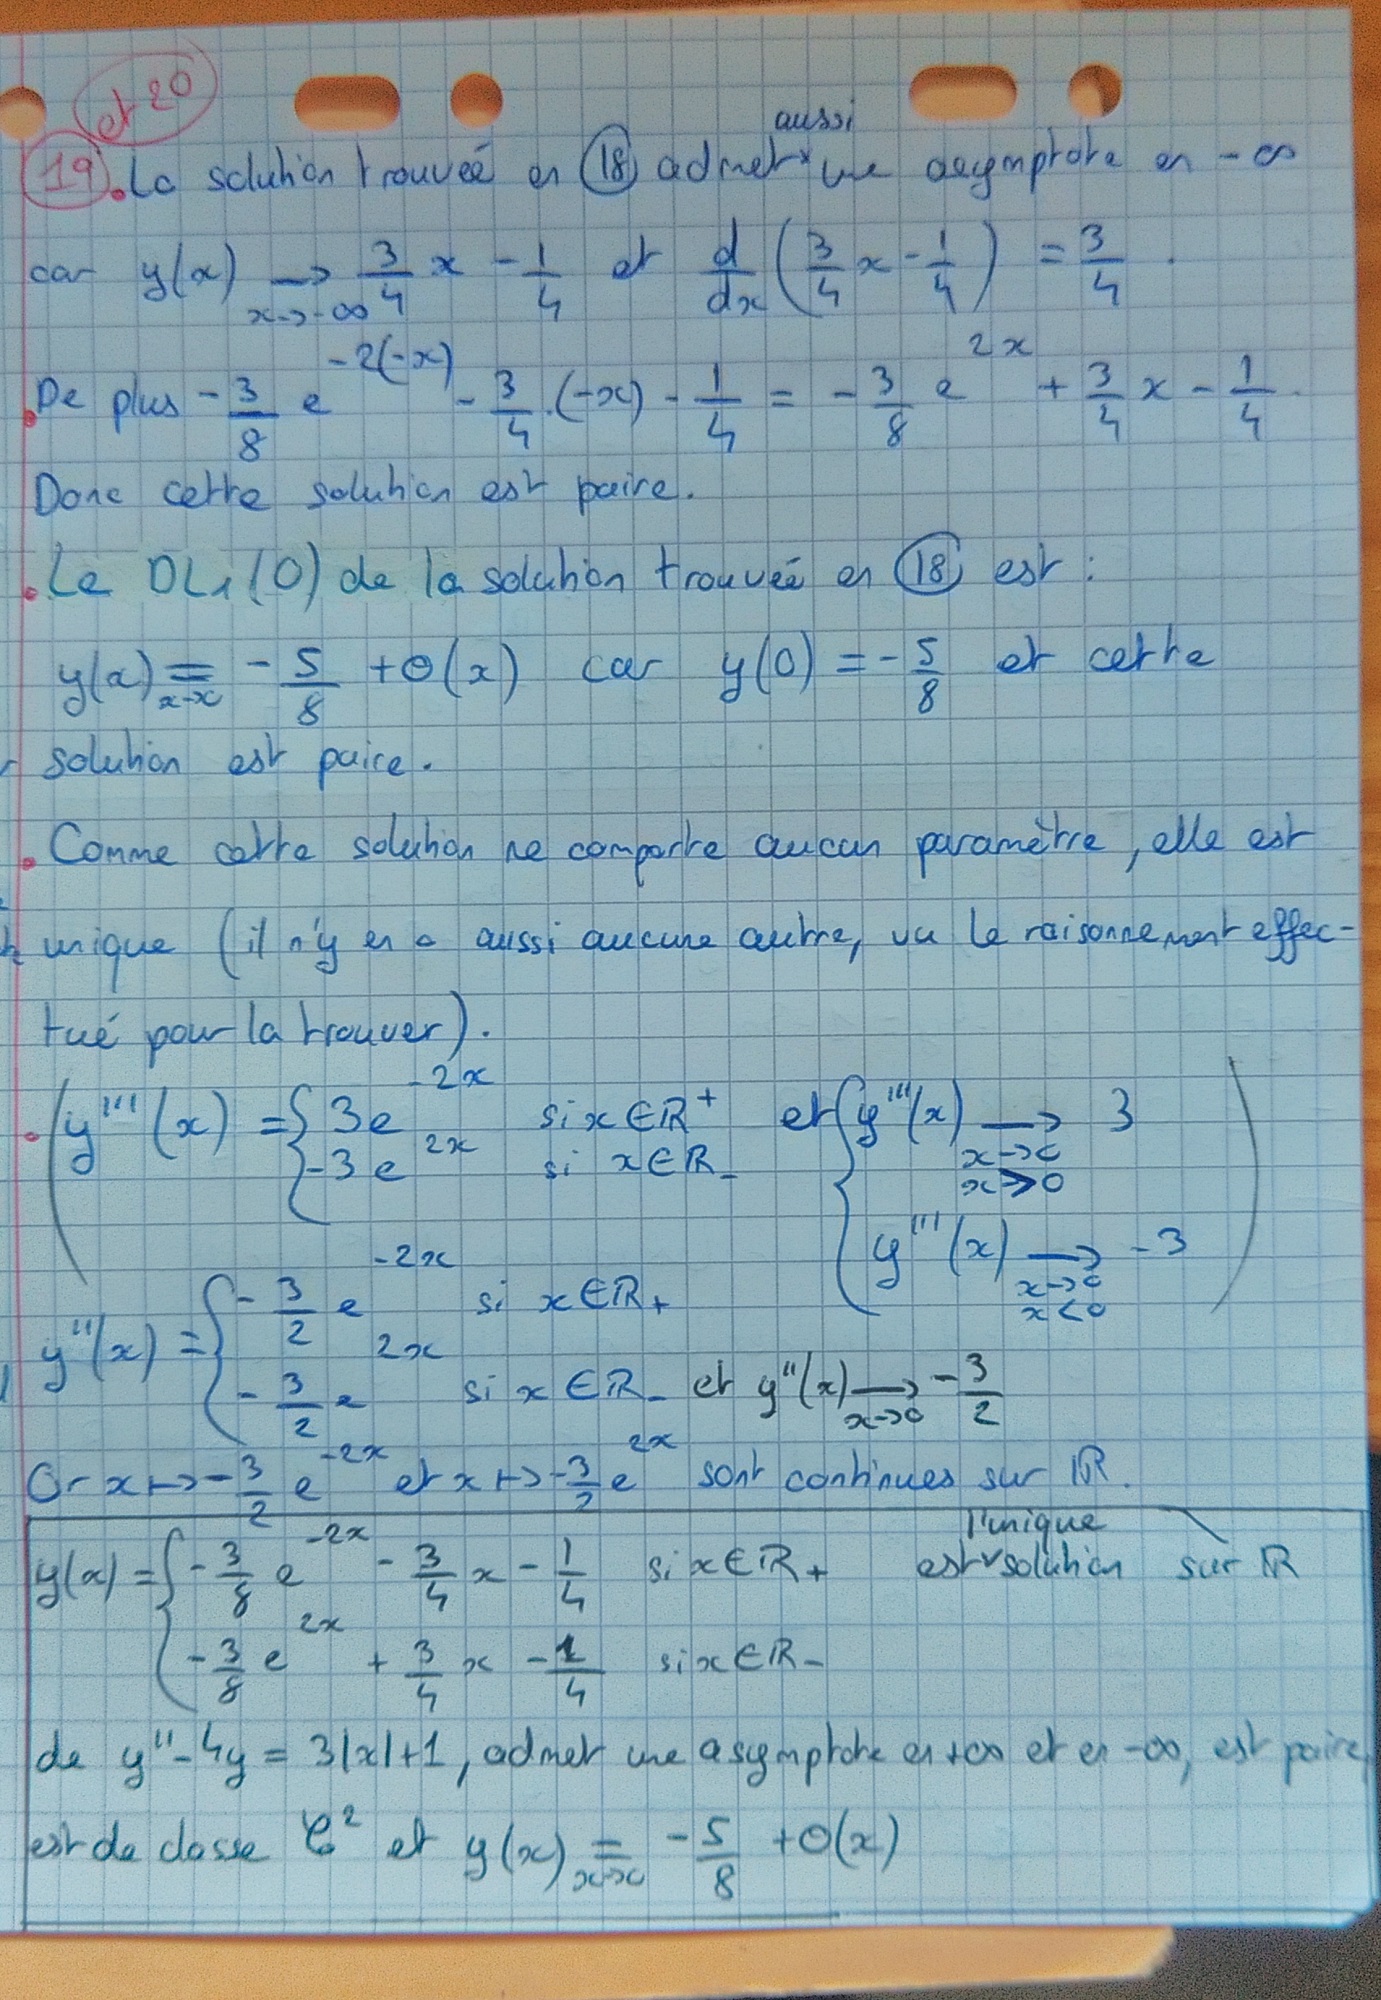 et 20
19. La solution trouveé en 18 admet aussi une asymptote en -∞
car y(x) →_{x→-∞} 3/4 x - 1/4 et d/dx (3/4 x - 1/4) = 3/4.
De plus -3/8 e^{-2(-x)} - 3/4.(-x) - 1/4 = -3/8 e^{2x} + 3/4 x - 1/4.
Donc cette solution est paire.
. Le DL₁(0) de la solution trouveé en 18 est :
y(x) =_{x→x} -5/8 + o(x) car y(0) = -5/8 et cette
solution est paire.
. Comme cette solution ne comporte aucun paramètre, elle est
unique (il n'y en a aussi aucune autre, vu le raisonnement effec-
tué pour la trouver).
. ( y'''(x) = { 3e^{-2x} si x∈ℝ^+ et { y'''(x) →_{x→0 x>0} 3
-3e^{2x} si x∈ℝ_- y'''(x) →_{x→0 x<0} -3 )
y''(x) = { -3/2 e^{-2x} si x∈ℝ_+
-3/2 e^{2x} si x∈ℝ_- et y''(x) →_{x→0} -3/2
Or x↦-3/2 e^{-2x} et x↦-3/2 e^{2x} sont continues sur ℝ.
y(x) = { -3/8 e^{-2x} - 3/4 x - 1/4 si x∈ℝ_+ est l'unique solution sur ℝ
-3/8 e^{2x} + 3/4 x - 1/4 si x∈ℝ_-
de y'' - 4y = 3|x|+1, admet une asymptote en +∞ et en -∞, est paire,
est de classe C² et y(x) =_{x→x} -5/8 + o(x)